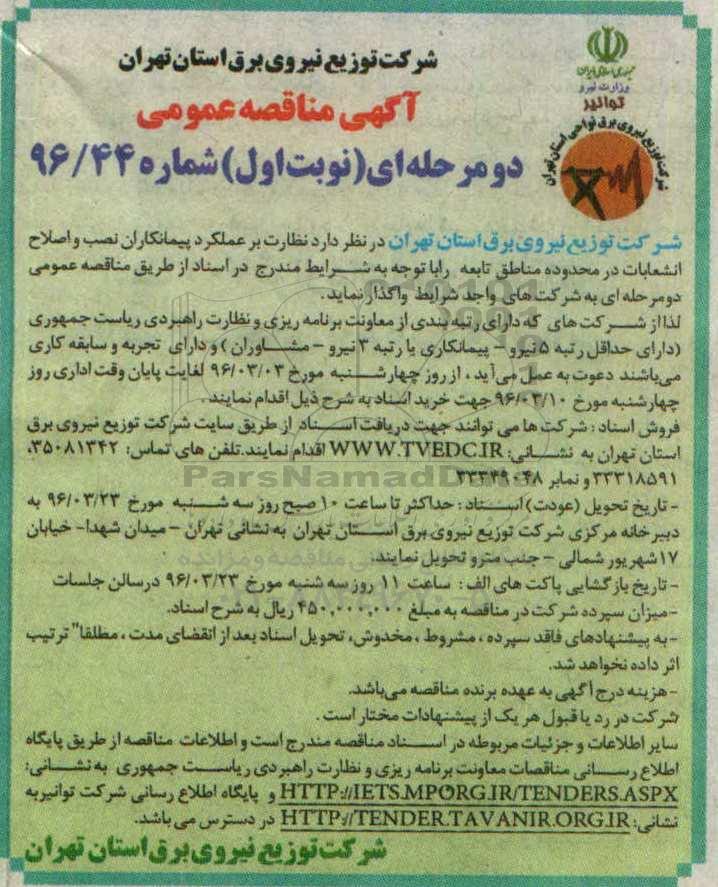 جمهوری اسلامی ایران
وزارت نیرو
توانیر
شرکت توزیع نیروی برق نواحی استان تهران
شرکت توزیع نیروی برق استان تهران
آگهی مناقصه عمومی
دو مرحله ای (نوبت اول) شماره ۹۶/۴۴
شرکت توزیع نیروی برق استان تهران در نظر دارد نظارت بر عملکرد پیمانکاران نصب و اصلاح
انشعابات در محدوده مناطق تابعه را با توجه به شرایط مندرج در اسناد از طریق مناقصه عمومی
دو مرحله ای به شرکت های واجد شرایط واگذار نماید.
لذا از شرکت های که دارای رتبه بندی از معاونت برنامه ریزی و نظارت راهبردی ریاست جمهوری
(دارای حداقل رتبه ۵ نیرو - پیمانکاری یا رتبه ۳ نیرو - مشاوران) و دارای تجربه و سابقه کاری
می‌باشند دعوت به عمل می آید، از روز چهارشنبه مورخ ۹۶/۰۳/۰۳ لغایت پایان وقت اداری روز
چهارشنبه مورخ ۹۶/۰۳/۱۰ جهت خرید اسناد به شرح ذیل اقدام نمایند.
فروش اسناد: شرکت ها می توانند جهت دریافت اسناد از طریق سایت شرکت توزیع نیروی برق
استان تهران به نشانی: WWW.TVEDC.IR اقدام نمایند. تلفن های تماس: ۳۵۰۸۱۳۴۲،
۳۳۳۱۸۵۹۱ و نمابر ۳۳۳۴۹۰۴۸
ParsNamadData
- تاریخ تحویل (عودت) اسناد: حداکثر تا ساعت ۱۰ صبح روز سه شنبه مورخ ۹۶/۰۳/۲۳ به
دبیرخانه مرکزی شرکت توزیع نیروی برق استان تهران به نشانی تهران - میدان شهدا - خیابان
۱۷ شهریور شمالی - جنب مترو تحویل نمایند.
- تاریخ بازگشایی پاکت های الف: ساعت ۱۱ روز سه شنبه مورخ ۹۶/۰۳/۲۳ در سالن جلسات
- میزان سپرده شرکت در مناقصه به مبلغ ۴۵۰,۰۰۰,۰۰۰ ریال به شرح اسناد.
- به پیشنهادهای فاقد سپرده، مشروط، مخدوش، تحویل اسناد بعد از انقضای مدت، مطلقا" ترتیب
اثر داده نخواهد شد.
- هزینه درج آگهی به عهده برنده مناقصه می‌باشد.
شرکت در رد یا قبول هر یک از پیشنهادات مختار است.
سایر اطلاعات و جزئیات مربوطه در اسناد مناقصه مندرج است و اطلاعات مناقصه از طریق پایگاه
اطلاع رسانی مناقصات معاونت برنامه ریزی و نظارت راهبردی ریاست جمهوری به نشانی:
HTTP://IETS.MPORG.IR/TENDERS.ASPX و پایگاه اطلاع رسانی شرکت توانیر به
نشانی: HTTP://TENDER.TAVANIR.ORG.IR در دسترس می باشد.
شرکت توزیع نیروی برق استان تهران